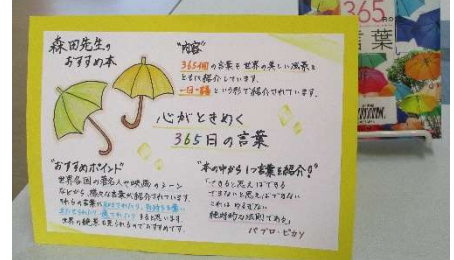 森田先生の
おすすめ本
"内容"
365個の言葉を世界の美しい風景と
ともに紹介しています。
一日一語という形で紹介されています。
心がときめく
365日の言葉
"おすすめポイント"
世界各国の著名人や映画のシーン
などから、様々な言葉が紹介されています。
世界の絶景も見られるのでおすすめです。
"本の中から1つ言葉を紹介!"
「できると思えばできる
できないと思えばできない
これはゆるぎない
絶対的な法則である」
パブロ・ピカソ
365日の
言葉